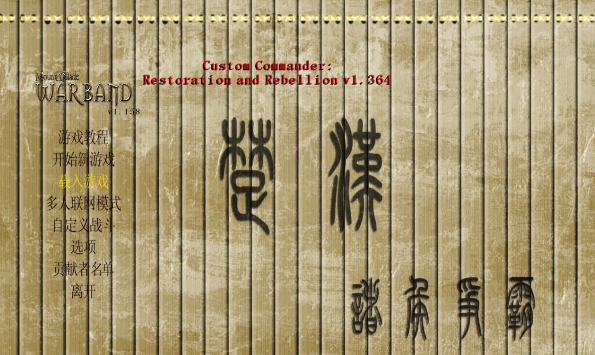 Custom Commander:
Restoration and Rebellion v1.364
Mount&Blade
WARBAND
v1.158
游戏教程
开始新游戏
载入游戏
多人联网模式
自定义战斗
选项
贡献者名单
离开
楚 漢
諸 侯 爭 霸